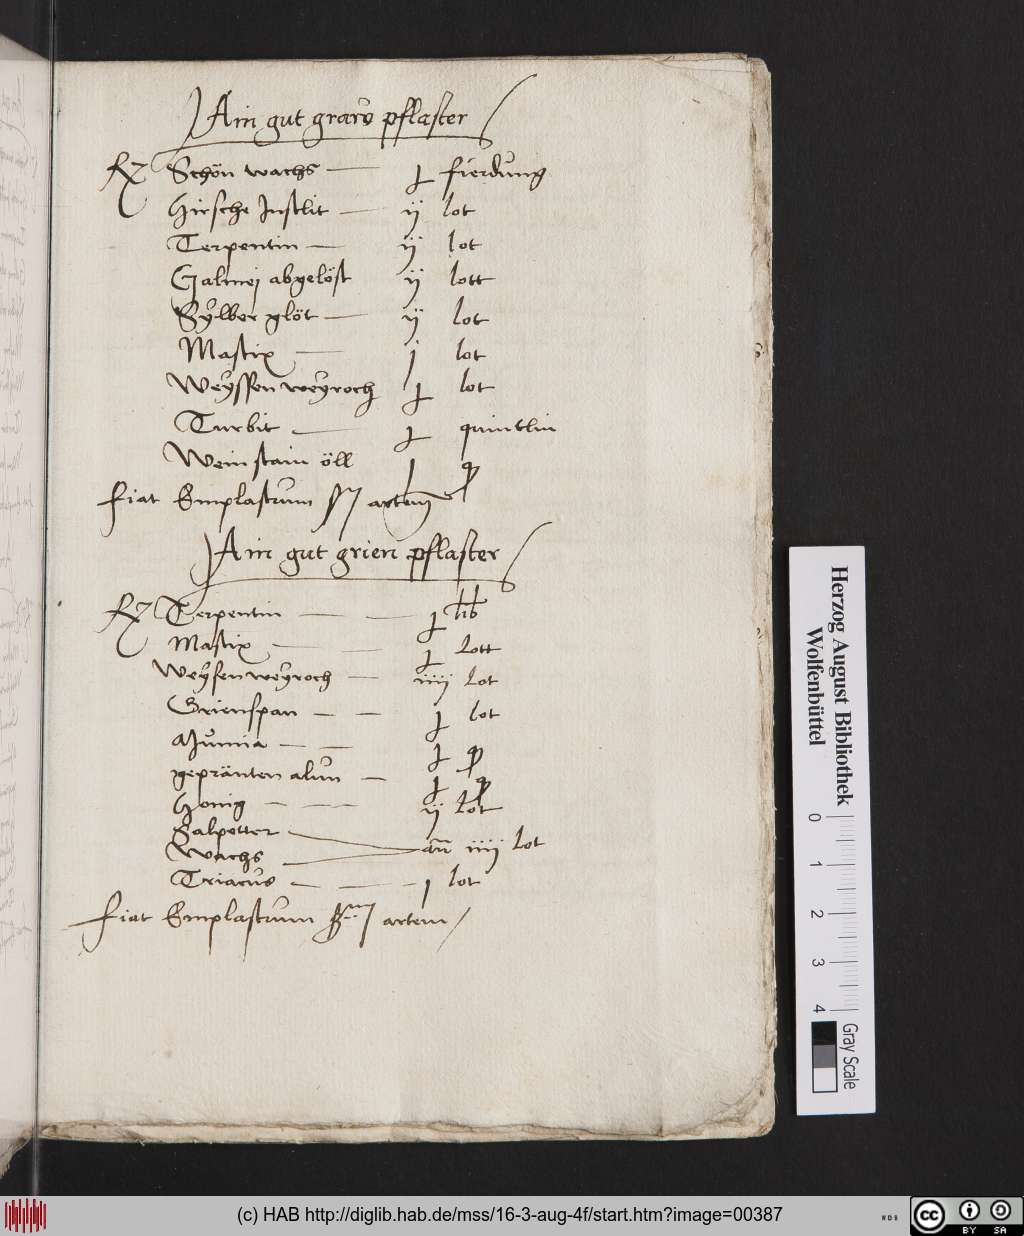 Ain gut graw pflaster
Rz Schön wachs j fierdung
Hirsche Inslit ij lot
Terpentin ij lot
Galmej abgelöst ij lott
Sÿlber glöt ij lot
Mastix j lot
Weÿssen weÿroch j lot
Turbit j quintlin
Weinstain öll j
fiat Emplastrum artem
Ain gut grien pflaster
Rz Terpentin j lib
Mastix j Lott
Weÿsen weÿroch iiij Lot
Grienspan j lot
Mumia j
gepränten alun j
Honig ij Lot
Salpetter
Wachs an iiij Lot
Triacus j lot
fiat Emplastrum artem
Herzog August Bibliothek
Wolfenbüttel
0 1 2 3 4
Gray Scale
(c) HAB http://diglib.hab.de/mss/16-3-aug-4f/start.htm?image=00387
WDB
cc BY SA